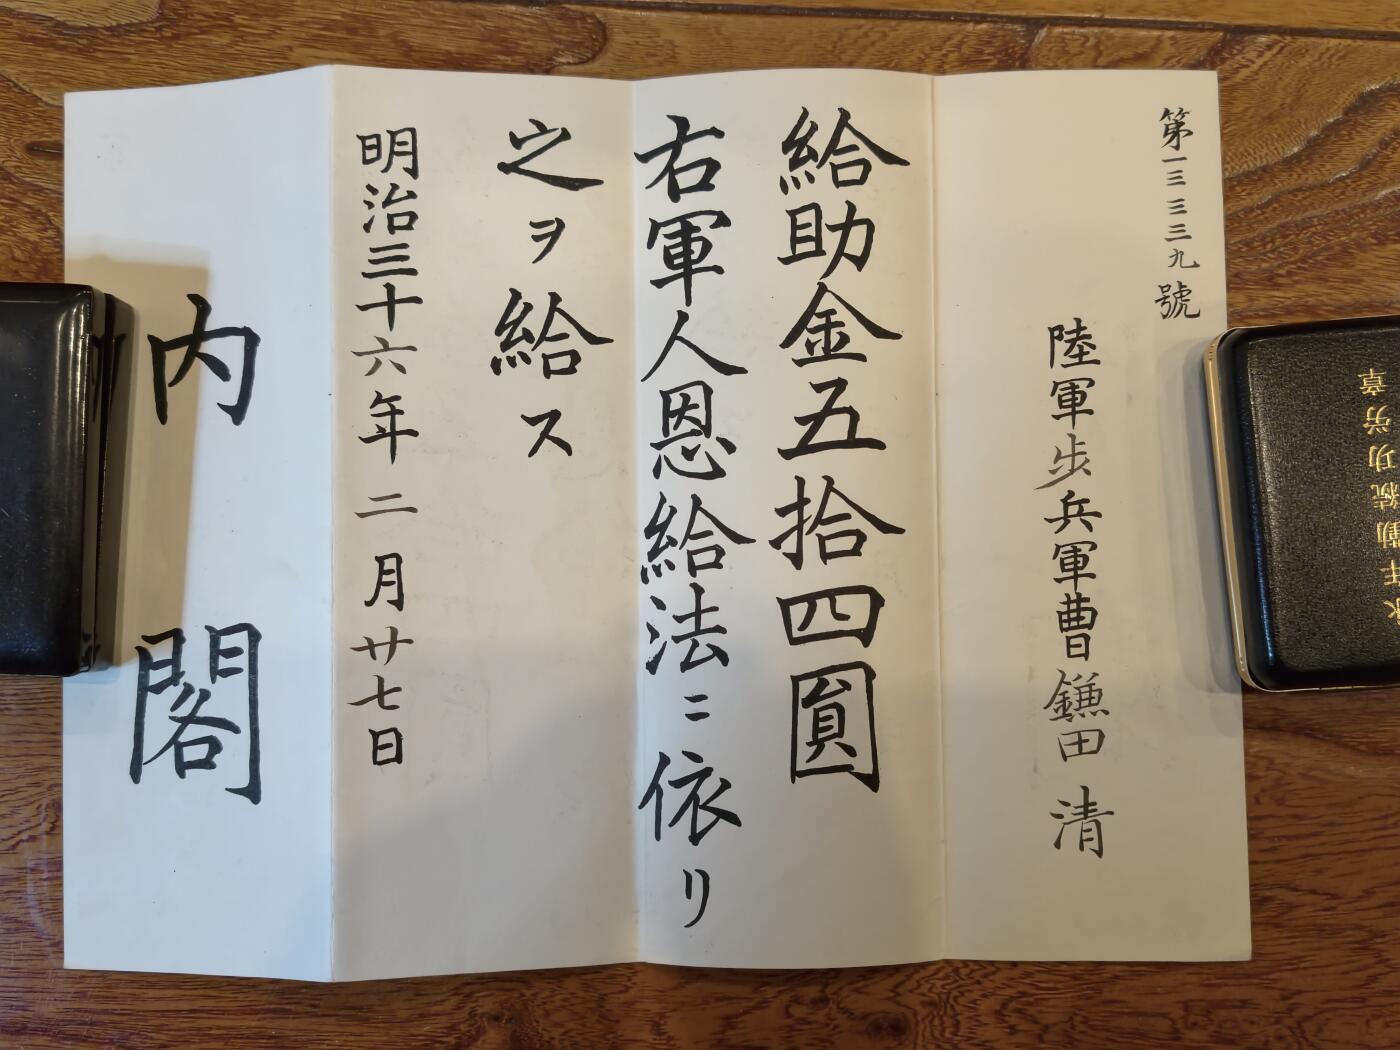 第一三三三九號
陸軍歩兵軍曹鎌田清
給助金五拾四圓
右軍人恩給法ニ依リ
之ヲ給ス
明治三十六年二月廿七日
内閣
永年勤続功労章